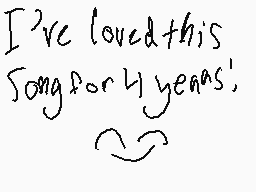 I've loved this
Song for 4 yenas!